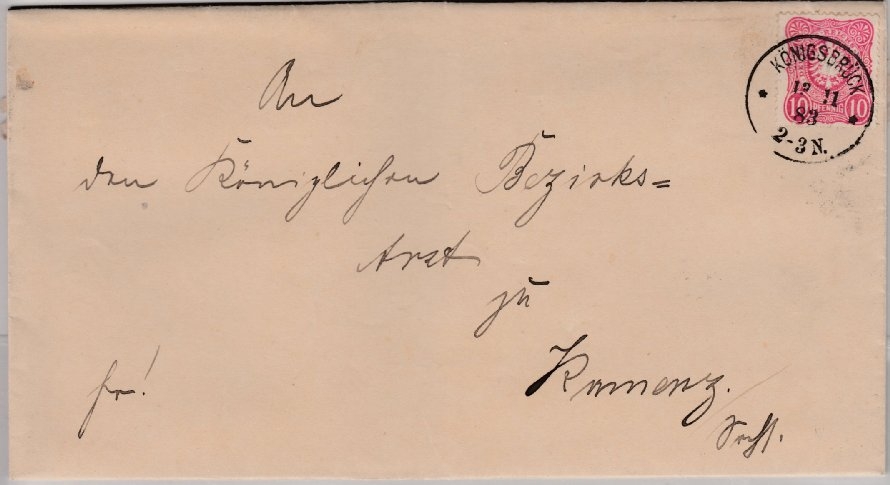 An
den Königlichen Bezirks=
Arzt
zu
Kamenz.
Sachs.
fr!
KÖNIGSBRÜCK
12 11
83
2-3 N.
10 PFENNIG 10